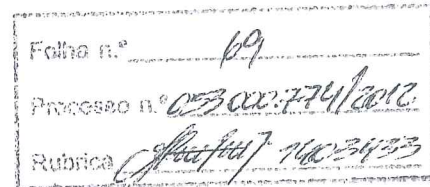 Folha n.º 69
Processo n.º 053.000.774/2012
Rubrica 1403433